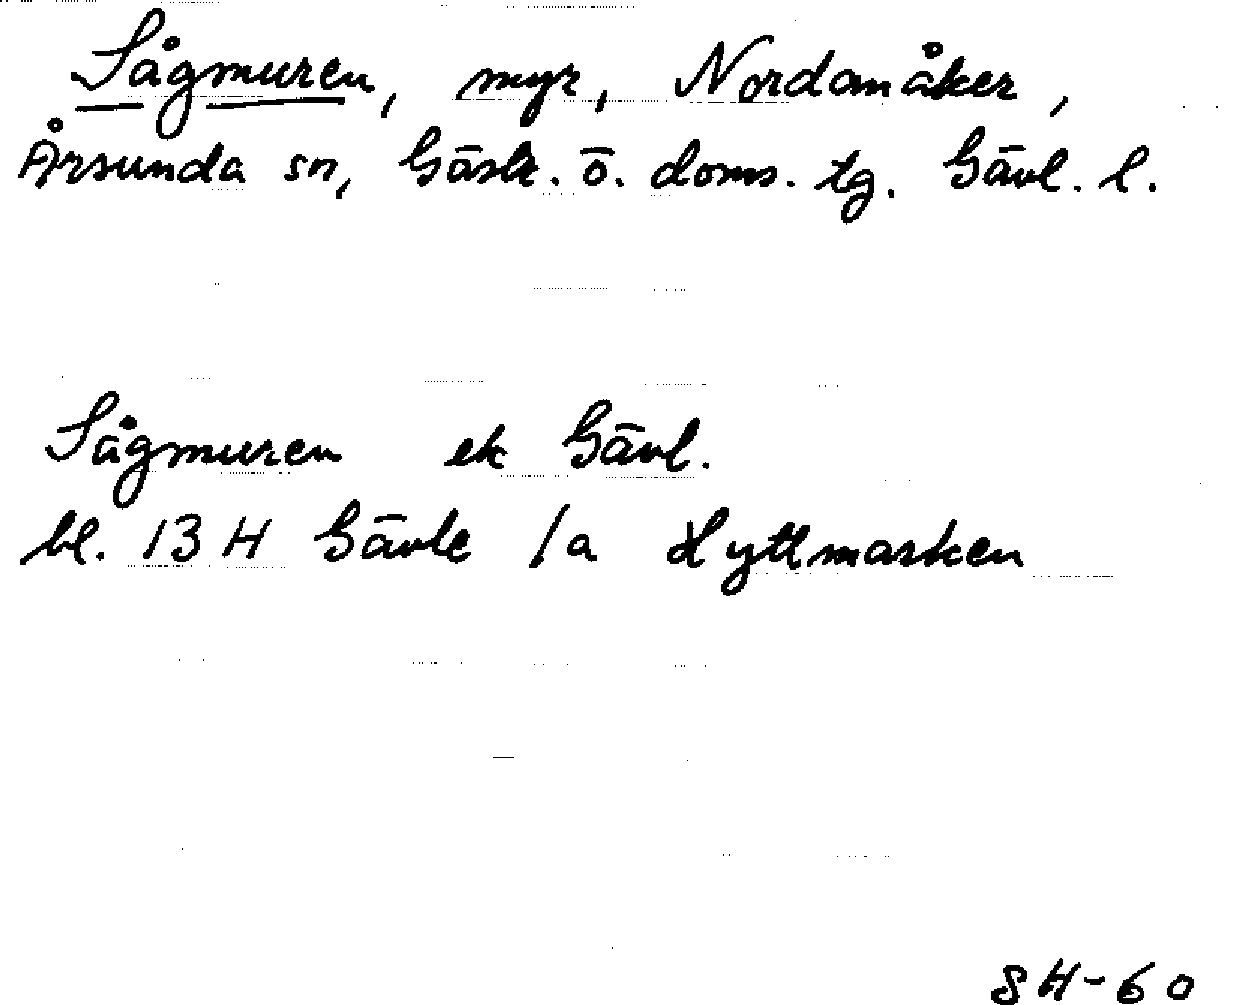 Sågmuren, myr, Nordanåker,
Årsunda sn, Gästr. ö. doms. tg. Gävl. l.
Sågmuren ek Gävl.
bl. 13 H Gävle /a Hyttmarken
SH-60